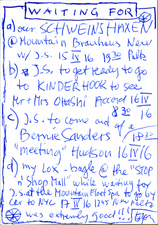 WAITING FOR
a) our SCHWEINSHAXEN
@ Mountain Brauhaus New
w/ J.S. 15 IV 16 1830 Paltz
b) J.S. to get ready to go
to KINDERHOOK to see
Mr + Mrs Otashi Accord 16 IV
830 16
c) J.S. to come out of a
Bernie Sanders
"meeting" Hudson 16 IV 16
d) my lox-bagle @ the "STOP
n' Shop Mall" while waiting for
J.S. at the Mountain Fleet Spa to go by
car to NYC 17 IV 16 New Paltz
was extremely good!!!